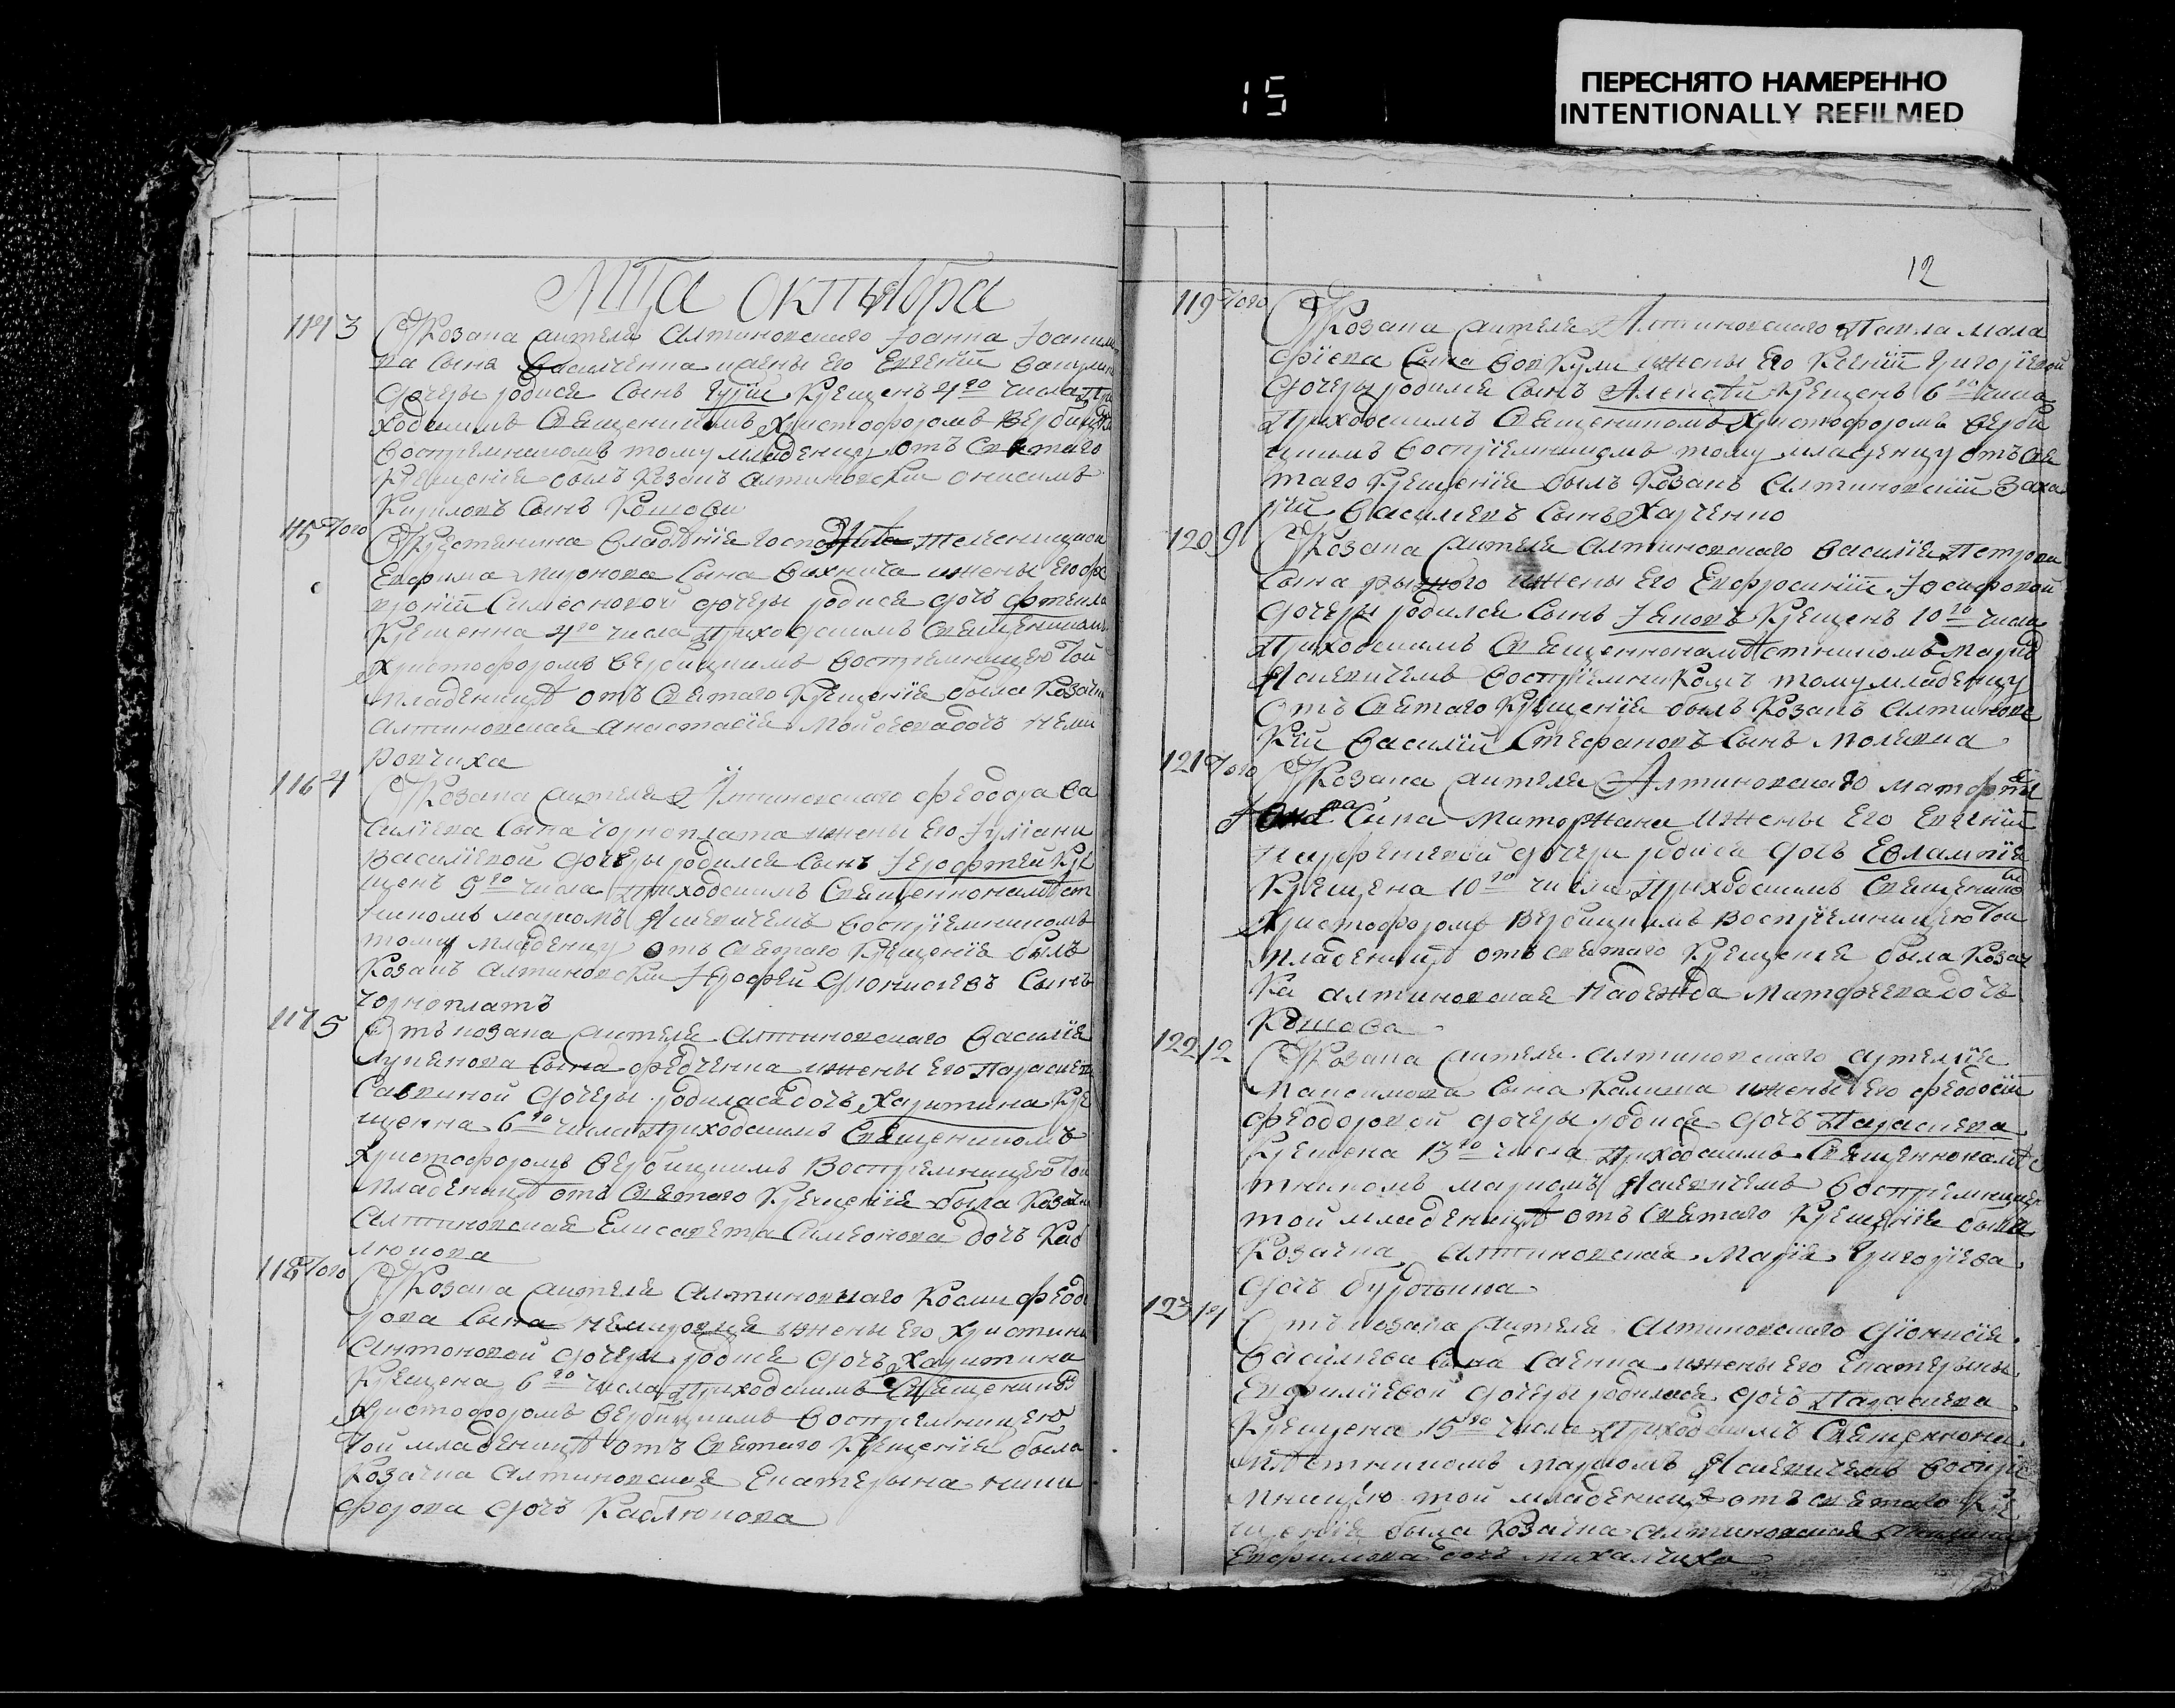 15
ПЕРЕСНЯТО НАМЕРЕННО
INTENTIONALLY REFILMED
Мца октября
114 3
Козака жителя Алтиновского Іоанна
сына жены его Евгеніи
дочеры родися сынъ Гурій крещенъ 4го числа При
ходскимъ Священникомъ Христофоромъ Вербицким
воспріемникомъ тому младенцу отъ Святаго
Крещенія былъ Козакъ Алтиновскій Онисимъ
Кириловъ сынъ
115 Того
Крестянина владѣнія
Евфима Миронова сына жены его
Симеоновой дочеры родися дочъ
Крещенна 4го числа Приходскимъ Священникомъ
Христофоромъ Вербицкимъ воспріемницею той
младеницѣ отъ Святаго Крещенія была Козачка
Алтиновская Анастасія Мойсеева дочъ
116 4
Козака жителя Алтиновского Феодора Ва
силіева сына Чорноплата жены его Іуліани
Василіевой дочеры родился сынъ Іерофтей Кре
щенъ 5го числа Приходскимъ Священнонамѣст
никомъ Маркомъ Яскевичемъ воспріемникомъ
тому младенцу отъ Святаго Крещенія былъ
Козакъ Алтиновскій Іерофей Діонисіевъ сынъ
Чорноплатъ
117 5
Отъ козака жителя Алтиновского Василія
Лукянова сына Федченка жены его Параскевы
Саввиной дочеры родилася дочъ Харитина Кре
щенна 6го числа Приходскимъ Священникомъ
Христофоромъ Вербицкимъ Воспріемницею той
младеницѣ отъ Святаго Крещенія была Козачка
Алтиновская Елисавета Симеонова дочъ Каб
люкова
118 Того
Козака жителя Алтиновского Космы Феодо
рова сына жены его Христини
Антоновой дочеры родися дочъ Харитина
Крещена 6го числа Приходскимъ Священникомъ
Христофоромъ Вербицкимъ воспріемницею
той младеницѣ отъ Святаго Крещенія была
Козачка Алтиновская Екатерына Ники
форова дочъ Каблюкова
12
119 Того
Козака жителя Алтиновского Павла Мала
фіева сына жены его Ксеніи Григоріевой
дочеры родился сынъ Алексѣй крещенъ 6го числа
Приходскимъ Священникомъ Христофоромъ Верби
цкимъ воспріемникомъ тому младенцу отъ Свя
таго Крещенія былъ Козакъ Алтиновскій Заха
рій Василіевъ сынъ Харченко
120 9
Козака жителя Алтиновского Василія Петрова
сына жены его Евфросиніи Іосифовой
дочеры родился сынъ Іаковъ Крещенъ 10го числа
Приходскимъ Священнонамѣстникомъ Марко
Яскевичемъ воспріемникомъ тому младенцу
отъ Святаго Крещенія былъ Козакъ Алтиновс
кій Василій Стефановъ сынъ
121 Того
Козака жителя Алтиновского Матфѣя
сына Маторжана жены его Евгеніи
Парфеніевой дочеры родися дочъ Евлампія
Крещена 10го числа Приходскимъ Священико
Христофоромъ Вербицкимъ Воспріемницею той
младеницѣ отъ Святаго Крещенія была Козач
ка Алтиновская Надежда Матфѣева дочъ
122 12
Козака жителя Алтиновского Артемія
Максимова сына Калина жены его Феодосіи
Феодоровой дочеры родися дочъ Параскева
Крещена 13го числа Приходскимъ Священнонамѣс
тникомъ Маркомъ Яскевичемъ воспріемницею
той младеницѣ отъ Святаго Крещенія была
Козачка Алтиновская Марія Григоріева
дочъ
123 14
Отъ козака жителя Алтиновского Діонисія
Василіева сына Саенка жены его Екатерыны
Евфиміевой дочеры родилася дочъ Параскева
Крещена 15го числа Приходскимъ Священнона
мѣстникомъ Маркомъ Яскевичемъ воспріе
мницею той младеницѣ отъ Святаго Кре
щенія была Козачка Алтиновская
Евфимова дочъ Михалчиха